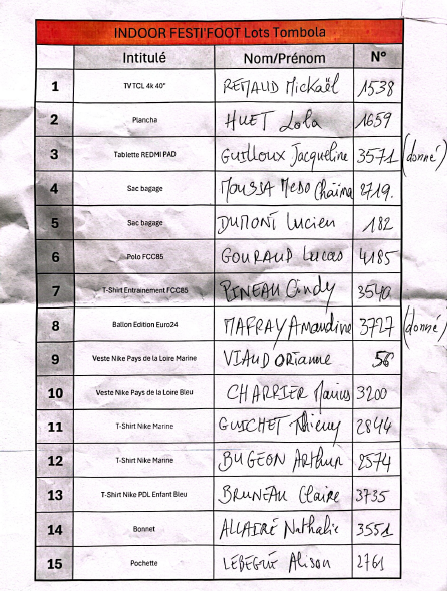 INDOOR FESTI'FOOT Lots Tombola
Intitulé Nom/Prénom N°
1 TV TCL 4k 40" REMAUD Mickaël 1538
2 Plancha HUET Lola 1659
3 Tablette REDMI PAD GUILLOUX Jacqueline 3571 (donné)
4 Sac bagage MOUSSA MEDO Chaima 2719.
5 Sac bagage DUMONT Lucien 182
6 Polo FCC85 GOURAUD Lucas 4185
7 T-Shirt Entrainement FCC85 PINEAU Cindy 3540
8 Ballon Edition Euro24 MAFRAY Amandine 3727 (donné)
9 Veste Nike Pays de la Loire Marine VIAUD Orianne 56
10 Veste Nike Pays de la Loire Bleu CHARRIER Marius 3200
11 T-Shirt Nike Marine GUICHET Thierry 2844
12 T-Shirt Nike Marine BUGEON Arthur 2574
13 T-Shirt Nike PDL Enfant Bleu BRUNEAU Claire 3735
14 Bonnet ALLAIRE Nathalie 3551
15 Pochette LEBEGUE Alison 2761